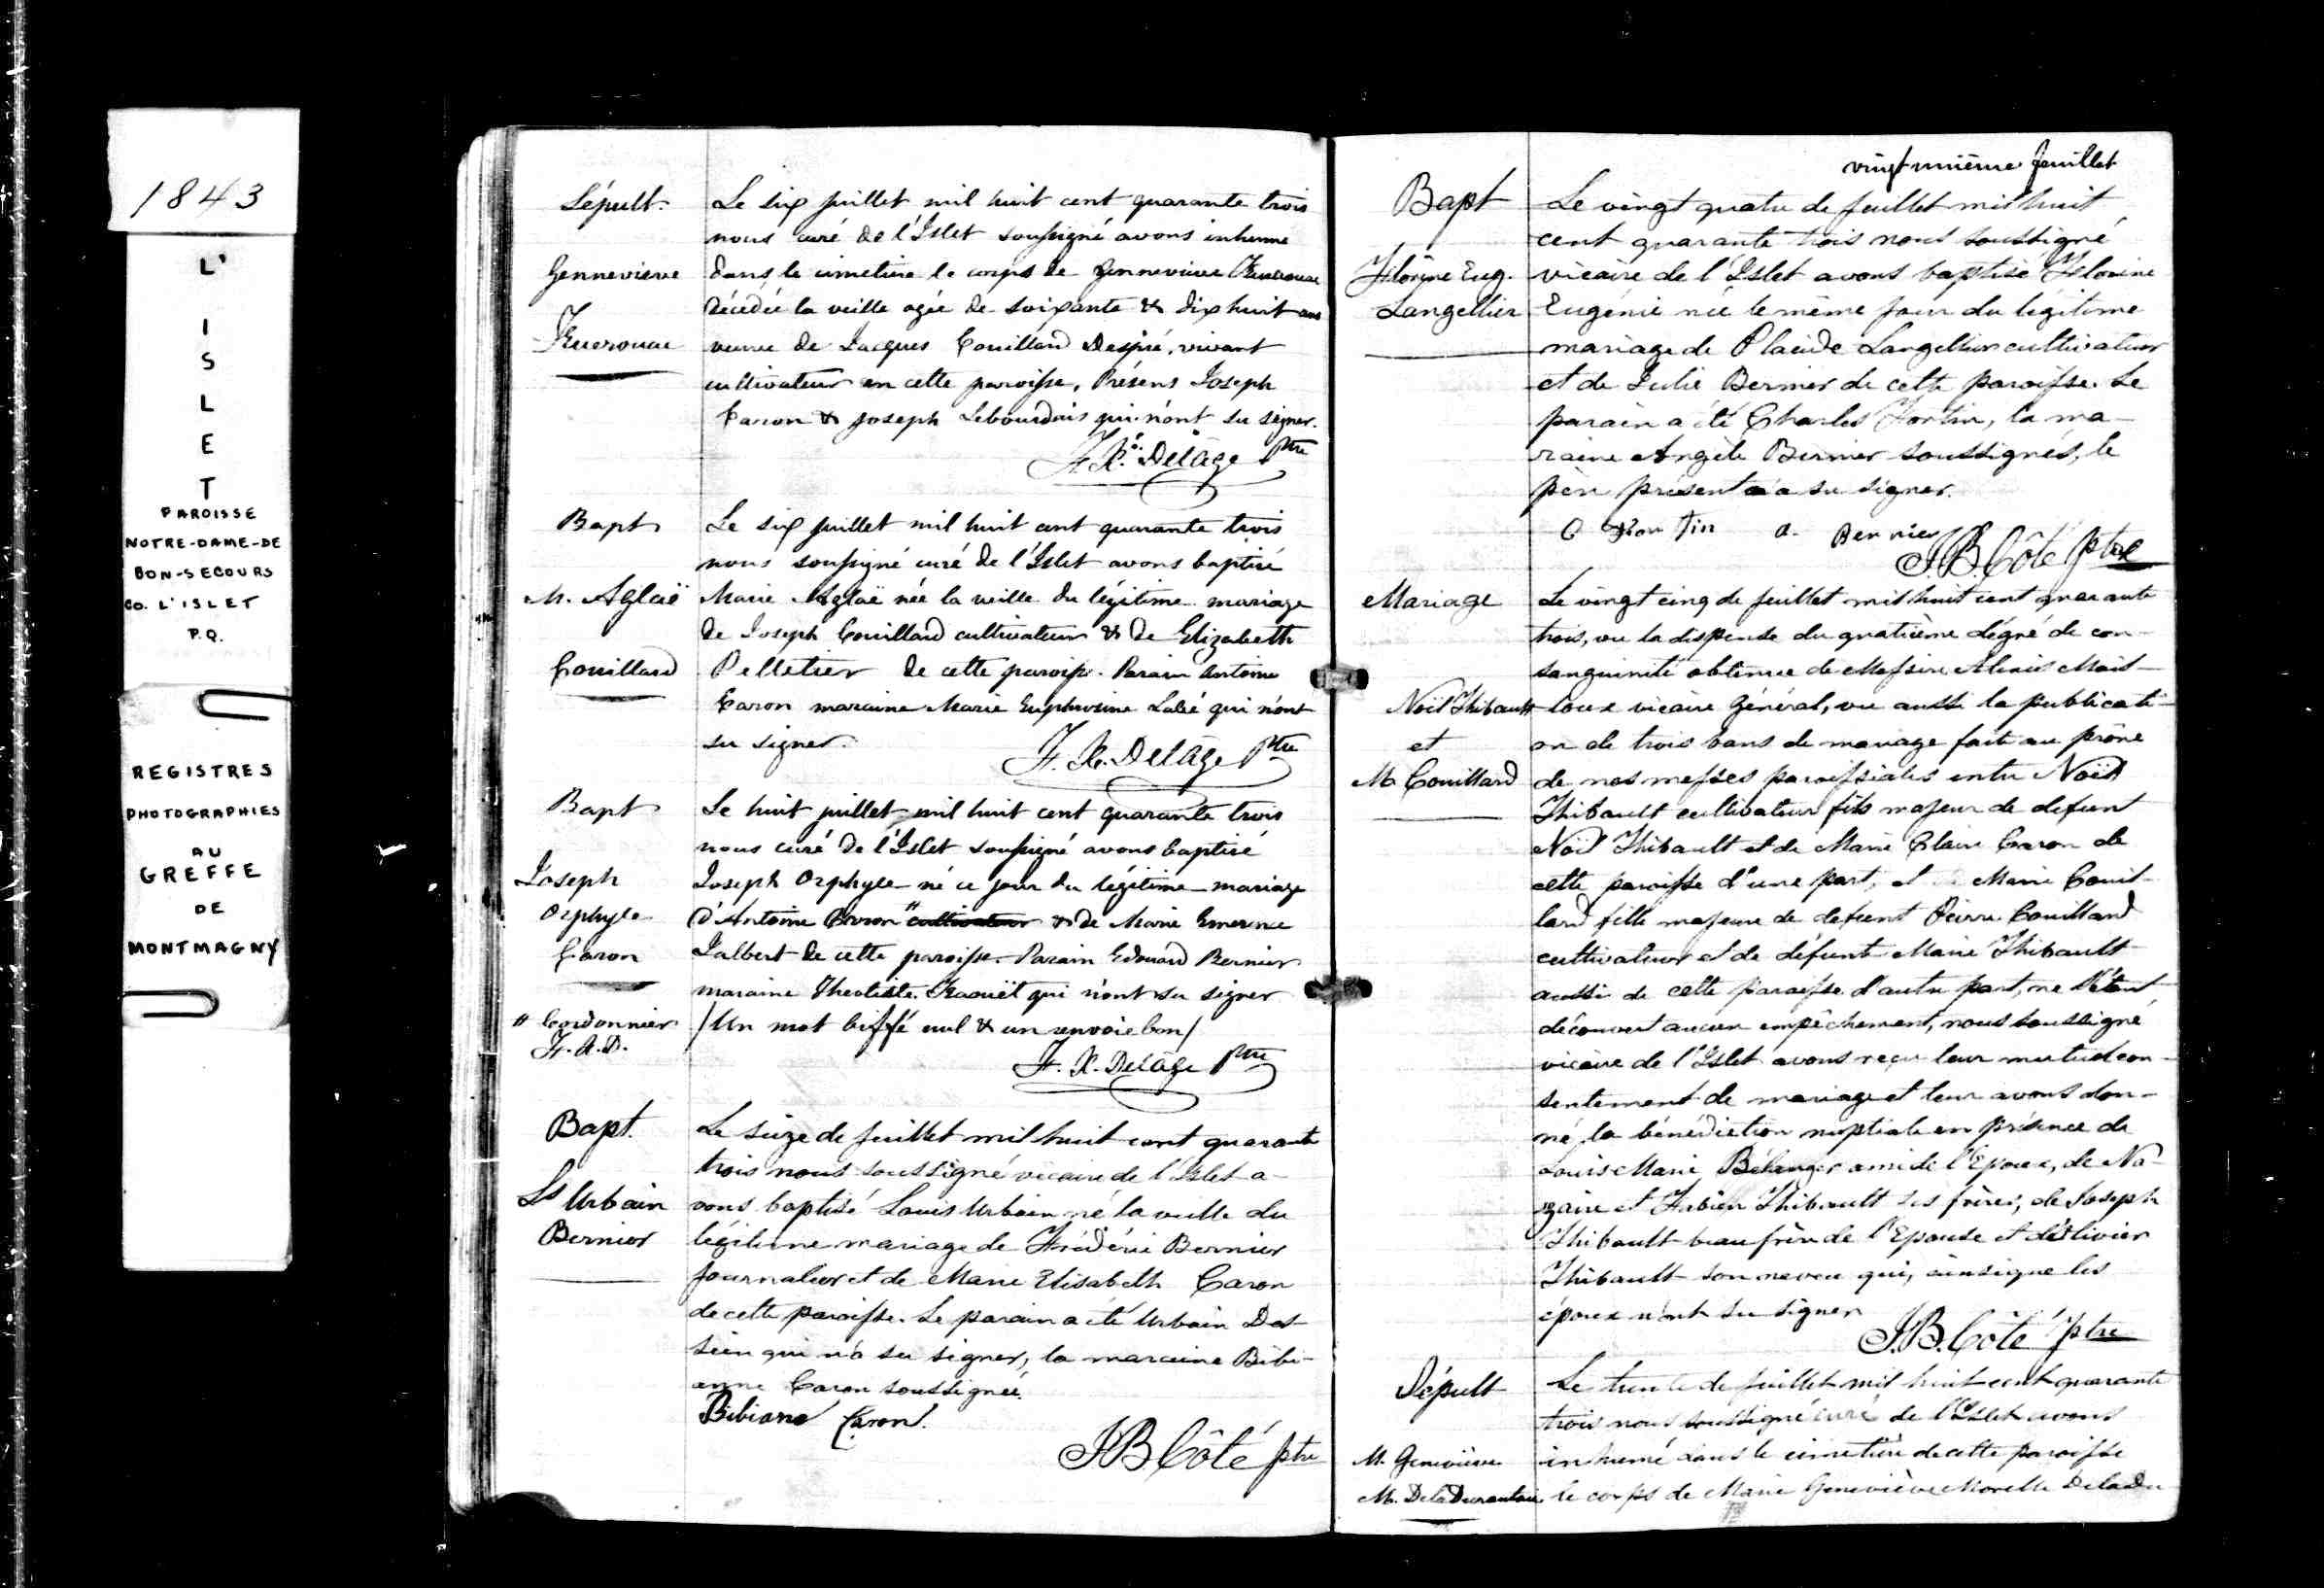 1843
L'
I
S
L
E
T
PAROISSE
NOTRE-DAME-DE
BON-SECOURS
CO. L'ISLET
P.Q.
REGISTRES
PHOTOGRAPHIES
AU
GREFFE
DE
MONTMAGNY
Sépult.
Genneviève
Kuerouac
Le six juillet mil huit cent quarante trois
nous curé de l'Islet soussigné avons inhumé
dans le cimetière le corps de Gennevieve Kuerouac
décédée la veille agée de soixante & dix huit ans
veuve de Jacques Couillard Després, vivant
cultivateur en cette paroisse, Présens Joseph
Caron & Joseph Lebourdais qui n'ont su signer.
F. X. Delâge Ptre
Bapt
M. Aglaë
Couillard
Le six juillet mil huit cent quarante trois
nous soussigné curé de l'Islet avons baptisé
Marie Aglaë née la veille du légitime mariage
de Joseph Couillard cultivateur & de Elizabeth
Pelletier de cette paroisse. Parain Antoine
Caron maraine Marie Euphrosine qui n'ont
su signer.
F. X. Delâge Ptre
Bapt
Joseph
Orphyle
Caron
" Cordonnier
F. X. D.
Le huit juillet mil huit cent quarante trois
nous curé de l'Islet soussigné avons baptisé
Joseph Orphyle né ce jour du légitime mariage
d'Antoine Caron " cultivateur & de Marie Emerence
Jalbert de cette paroisse. Parain Edouard Bernier
maraine Theotiste qui n'ont su signer
/Un mot biffé nul & un renvoie bon/
F. X. Delâge Ptre
Bapt.
Ls Urbain
Bernier
Le seize de Juillet mil huit cent quarante
trois nous soussigné vicaire de l'Islet a-
vons baptisé Louis Urbain né la veille du
légitime mariage de Frédéric Bernier
Journalier et de Marie Elisabeth Caron
de cette paroisse. Le parain a été Urbain Das
sein qui n'a su signer, la maraine Bibi-
anne Caron soussignée.
Bibiane Caron.
J B Côté ptre
vingt unième feuillet
Bapt
Florine Eug.
Langellier
Le vingt quatre de Juillet mil huit
cent quarante trois nous soussigné
vicaire de l'Islet avons baptisé Florine
Eugénie née le même jour du légitime
mariage de Placide Langellier cultivateur
et de Julie Bernier de cette paroisse. Le
parain a été Charles Fortin, la ma-
raine Angèle Bernier soussignés, le
père présent n'a su signer.
C Fortin a. Bernier
J.B. Côté ptre
Mariage
Noël Thibault
et
M. Couillard
Le vingt cinq de Juillet mil huit cent quarante
trois, vu la dispense du quatrième dégré de con-
sanguinité obtenue de Messire Alexis Mail-
loux vicaire Général, vu aussi la publicati-
on de trois bans de mariage faite au prône
de nos messes paroissiales entre Noël
Thibault cultivateur fils majeur de defunt
Noël Thibault et de Marie Claire Caron de
cette paroisse d'une part, et Marie Couil-
lard fille majeure de defunt Pierre Couillard
cultivateur et de défunte Marie Thibault
aussi de cette paroisse d'autre part, ne s'étant
découvert aucun empêchement, nous soussigné
vicaire de l'Islet avons reçu leur mutuel con-
sentement de mariage et leur avons don-
né la bénédiction nuptiale en présence de
Louis Marie Bélanger ami de l'Epoux, de Na-
zaire et Fabien Thibault ses frères, de Joseph
Thibault beau frère de l'Epouse et d'Olivier
Thibault son neveu qui, ainsi que les
époux n'ont su signer
J.B. Côté ptre
Sépult
M. Geneviève
M. DelaDurantaie
Le trente de Juillet mil huit cent quarante
trois nous soussigné curé de l'Islet avons
inhumé dans le cimetière de cette paroisse
le corps de Marie Geneviève Morelle DelaDu